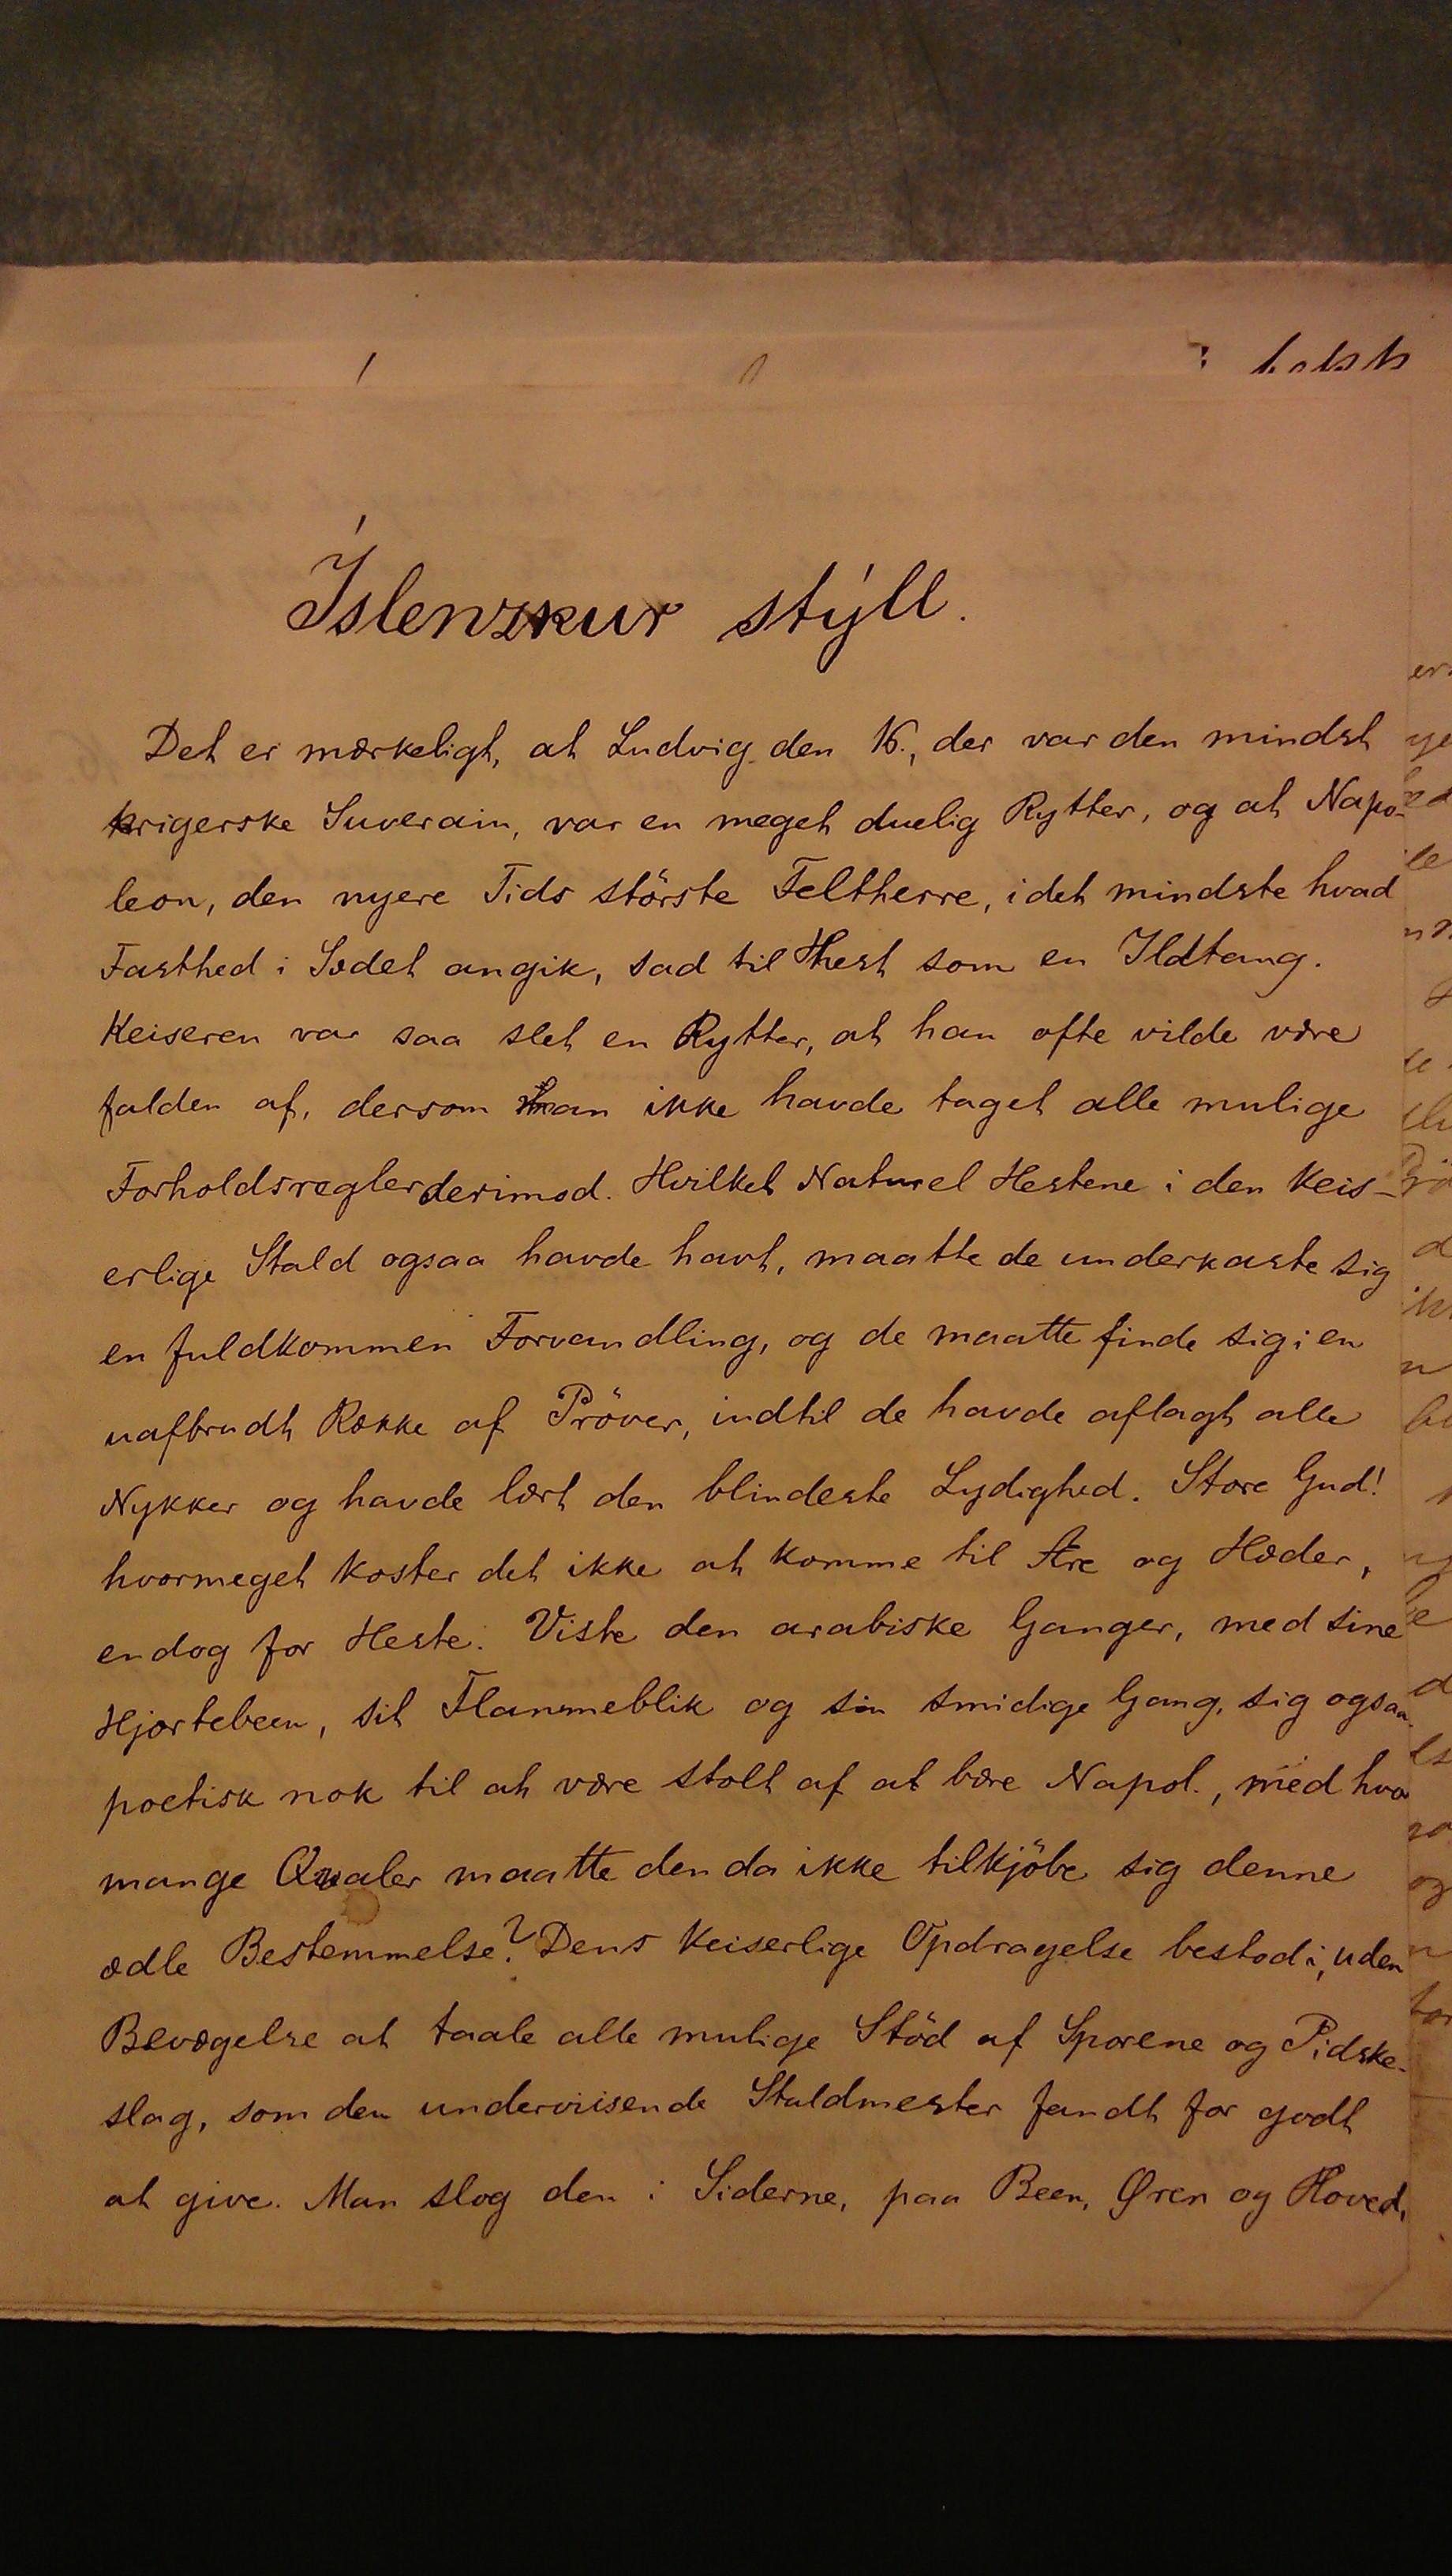 Íslenzkur stýll.
Det er mærkeligt, at Ludvig den 16., der var den mindst
krigerske Suverain, var en meget duelig Rytter, og at Napo-
leon, den nyere Tids störste Feltherre, i det mindste hvad
Fasthed i Sædet angik, sad til Hest som en Ildtang.
Keiseren var saa slet en Rytter, at han ofte vilde være
falden af, dersom han ikke havde taget alle mulige
Forholdsregler derimod. Hvilket Naturel Hestene i den Keis-
erlige Stald ogsaa havde havt, maatte de underkaste sig
en fuldkommen Forvandling, og de maatte finde sig i en
uafbrudt Række af Pröver, indtil de havde aflagt alle
Nykker og havde lært den blindeste Lydighed. Store Gud!
hvormeget koster det ikke at komme til Ære og Hæder,
endog for Heste. Viste den arabiske Ganger, med sine
Hjortebeen, sit Flammeblik og sin smidige Gang, sig ogsaa
poetisk nok til at være stolt af at bære Napol., med hvor
mange Qvaler maatte den da ikke tilkjöbe sig denne
ædle Bestemmelse? Dens Keiserlige Opdragelse bestod i, uden
Bevægelse at taale alle mulige Stöd af Sporene og Pidske-
slag, som den underviisende Staldmester fandt for godt
at give. Man slog den i Siderne, paa Been, Øren og Hoved,